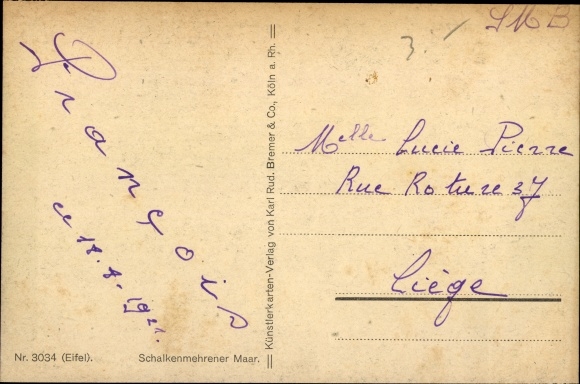 S.M.B
3.
François
ce 18.8.1921.
Melle Lucie Pierre
Rue Roture 37
Liège
Künstlerkarten-Verlag von Karl Rud. Bremer & Co., Köln a. Rh.
Nr. 3034 (Eifel). Schalkenmehrener Maar.